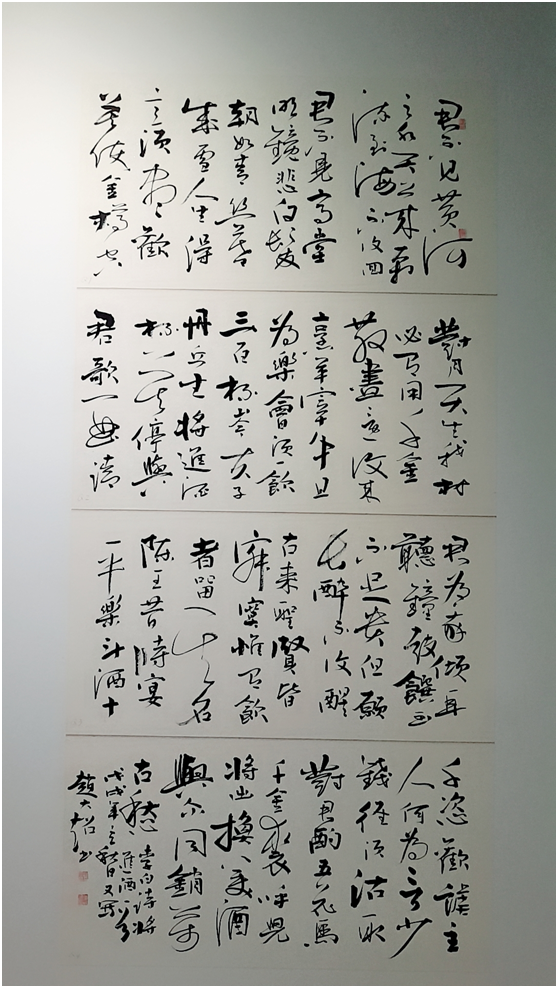 君不见黄河
之水天上来奔
流到海不復回
君不見高堂
明鏡悲白髮
朝如青丝暮
成雪人生得
意須盡歡
莫使金樽空
對月天生我材
必有用千金
散盡還復来
烹羊宰牛且
為樂會須一飲
三百杯岑夫子
丹丘生將進酒
杯莫停與
君歌一曲請
君為我傾耳
聽鐘鼓饌玉
不足貴但願
長醉不復醒
古来聖賢皆
寂寞惟有飲
者留其名
陳王昔時宴
平樂斗酒十
千恣歡謔主
人何為言少
錢徑須沽取
對君酌五花馬
千金裘呼兒
將出換美酒
與尔同銷萬
古愁
李白詩將
進酒一首
戊戌年之秋日又寫
趙大書